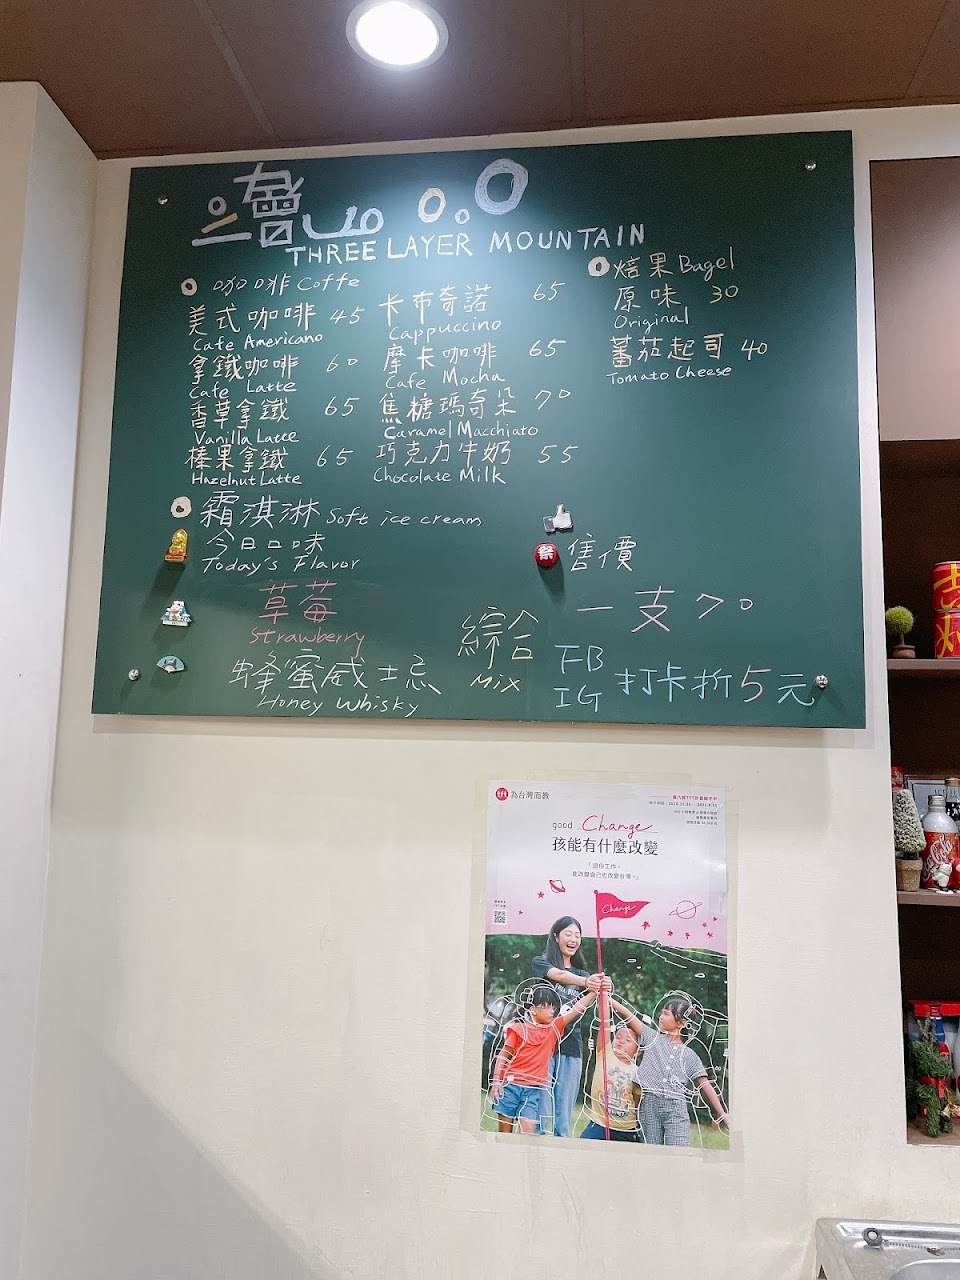 THREE LAYER MOUNTAIN
咖啡 Coffe
美式咖啡 45
Cafe Americano
拿鐵咖啡 60
Cafe Latte
香草拿鐵 65
Vanilla Latte
榛果拿鐵 65
Hazelnut Latte
卡布奇諾 65
Cappuccino
摩卡咖啡 65
Cafe Mocha
焦糖瑪奇朵 70
Caramel Macchiato
巧克力牛奶 55
Chocolate Milk
焙果 Bagel
原味 30
Original
蕃茄起司 40
Tomato Cheese
霜淇淋 Soft ice cream
今日口味
Today's Flavor
草莓
Strawberry
蜂蜜威士忌
Honey Whisky
綜合
Mix
祭
售價
一支70
FB
IG
打卡折5元
為台灣而教
good Change
孩能有什麼改變
「這份工作,
能改變自己也改變台灣。」
Change
Coca-Cola